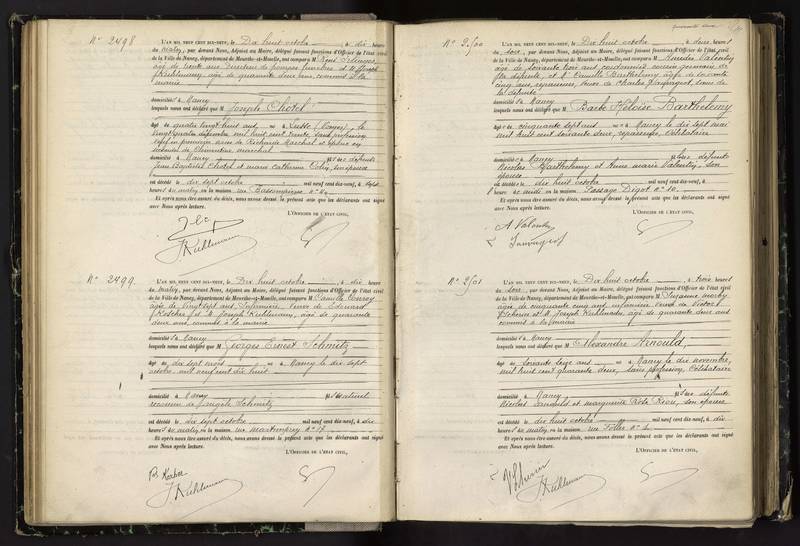 N° 2498
L'AN MIL NEUF CENT DIX-NEUF, le Dix huit octobre à dix heures
du matin, par devant Nous, Adjoint au Maire, délégué faisant fonctions d'Officier de l'état civil
de la Ville de Nancy, département de Meurthe-et-Moselle, ont comparu M
âgé de trente ans Directeur de pompes funèbres et M Joseph
Kuhlmann, âgé de quarante deux ans, commis à la
mairie
domiciliés à Nancy
lesquels nous ont déclaré que M Joseph Chotel
âgé de quatre vingt huit ans né à (Vosges), le
vingt quatre décembre mil huit cent trente, sans profession
veuf en premières noces de Richarde Marchal et époux en
secondes de Clémentine Marchal
domicilié à Nancy fils des défunts
Jean Baptiste Chotel et Marie Catherine Colin, son épouse
est décédé le dix sept octobre mil neuf cent dix-neuf, à sept
heures du matin, en la maison rue Bassompierre n°
Et après nous être assuré du décès, nous avons dressé le présent acte que les déclarants ont signé
avec Nous après lecture.
L'OFFICIER DE L'ÉTAT CIVIL,
J Kuhlmann
N° 2499.
L'AN MIL NEUF CENT DIX-NEUF, le Dix huit octobre à dix heures
du matin, par devant Nous, Adjoint au Maire, délégué faisant fonctions d'Officier de l'état civil
de la Ville de Nancy, département de Meurthe-et-Moselle, ont comparu M Camille
âgée de vingt sept ans infirmière, veuve de Edouard
et M Joseph Kuhlmann, âgé de quarante
deux ans, commis à la mairie
domiciliés à Nancy
lesquels nous ont déclaré que M Georges Ernest Schmitz
âgé de dix sept mois né à Nancy le dix sept
mil neuf cent dix huit
domicilié à Nancy fils naturel
reconnu de Angèle Schmitz
est décédé le dix sept octobre mil neuf cent dix-neuf, à dix
heures du matin, en la maison rue n° 17
Et après nous être assuré du décès, nous avons dressé le présent acte que les déclarants ont signé
avec Nous après lecture.
L'OFFICIER DE L'ÉTAT CIVIL,
J Kuhlmann
N° 2500
L'AN MIL NEUF CENT DIX-NEUF, le Dix huit octobre à deux heures
du soir, par devant Nous, Adjoint au Maire, délégué faisant fonctions d'Officier de l'état civil
de la Ville de Nancy, département de Meurthe-et-Moselle, ont comparu M Amédée Valentin
âgé de soixante trois ans cordonnier cousin germain de
la défunte, et Mme Camille Barthelemy âgée de soixante
cinq ans, repasseuse, veuve de Charles, soeur de
la défunte
domiciliés à Nancy
lesquels nous ont déclaré que M Barbe Héloïse Barthelemy
âgée de cinquante sept ans née à Nancy le dix sept mai
mil huit cent soixante deux, repasseuse, célibataire
domiciliée à Nancy fille des défunts
Nicolas Barthelemy et Anne Marie Valentin, son
épouse
est décédée le dix huit octobre mil neuf cent dix-neuf, à
heures du matin, en la maison Passage Digot n° 10
Et après nous être assuré du décès, nous avons dressé le présent acte que les déclarants ont signé
avec Nous après lecture.
L'OFFICIER DE L'ÉTAT CIVIL,
A Valentin
N° 2501
L'AN MIL NEUF CENT DIX-NEUF, le Dix huit octobre à trois heures
du soir, par devant Nous, Adjoint au Maire, délégué faisant fonctions d'Officier de l'état civil
de la Ville de Nancy, département de Meurthe-et-Moselle, ont comparu M Suzanne
âgée de cinquante cinq ans infirmière veuve de Victor
et M Joseph Kuhlmann, âgé de quarante deux ans
commis à la mairie
domiciliés à Nancy
lesquels nous ont déclaré que M Alexandre Arnould
âgé de soixante seize ans né à Nancy le dix novembre
mil huit cent quarante deux, sans profession, Célibataire
domicilié à Nancy fils des défunts
Nicolas Arnould et Marguerite Rose, son épouse
est décédé le dix huit octobre mil neuf cent dix-neuf, à dix
heures du matin, en la maison rue Foller n°
Et après nous être assuré du décès, nous avons dressé le présent acte que les déclarants ont signé
avec Nous après lecture.
L'OFFICIER DE L'ÉTAT CIVIL,
J Kuhlmann